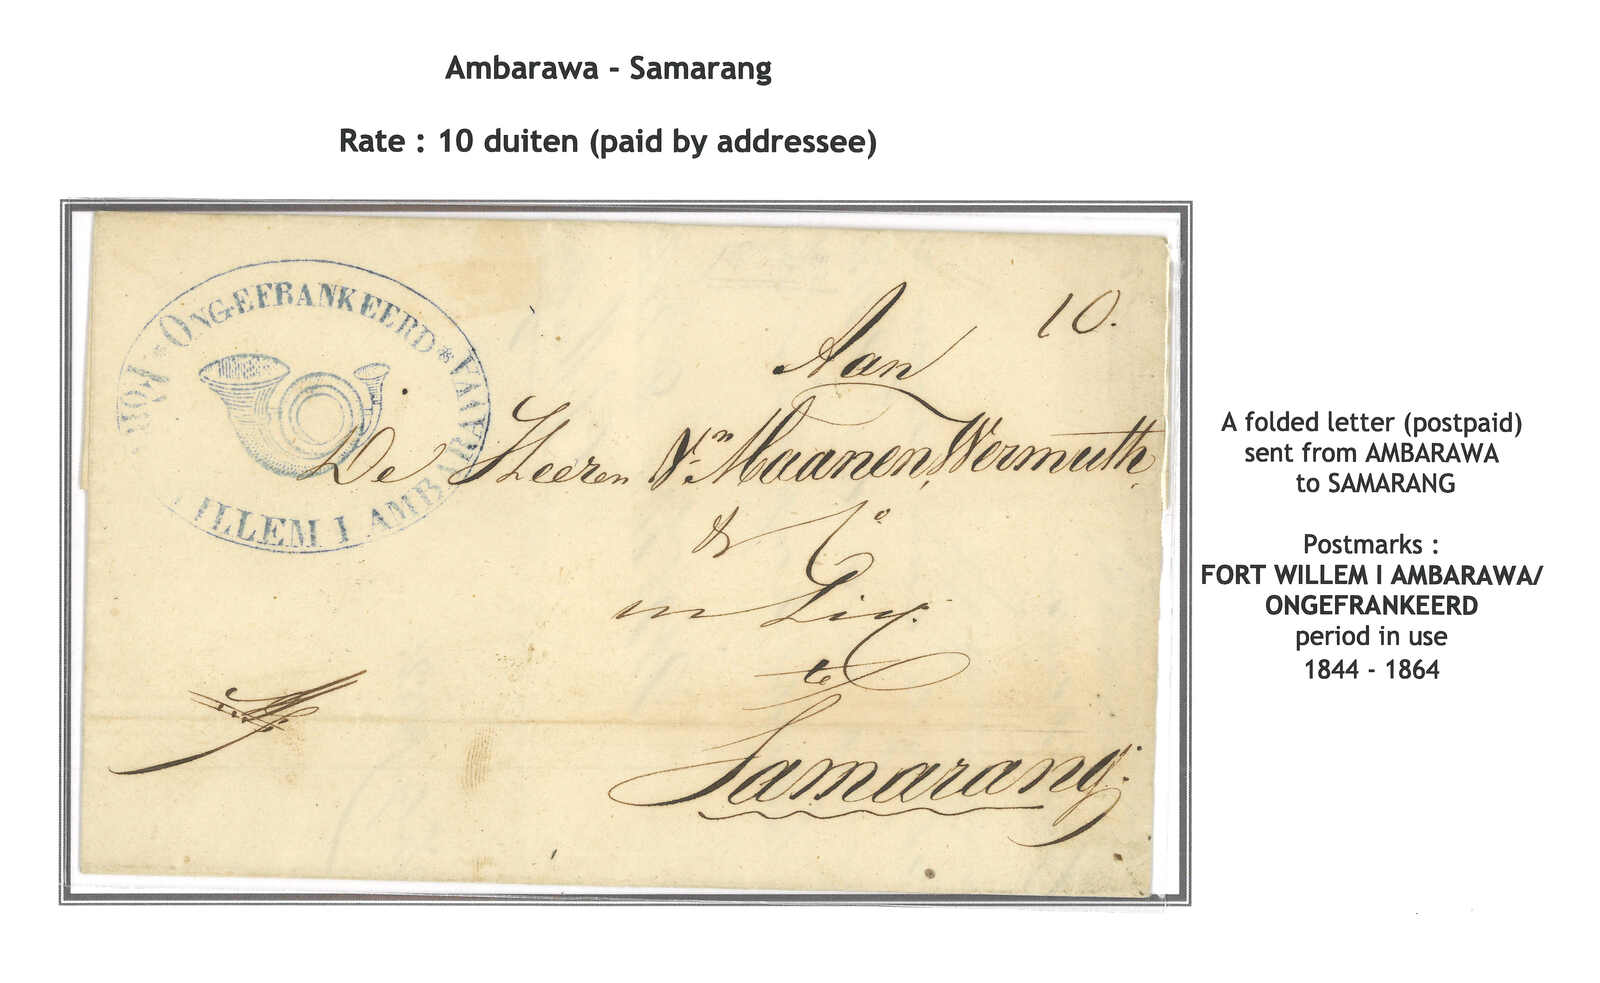 Ambarawa - Samarang
Rate : 10 duiten (paid by addressee)
ONGEFRANKEERD
FORT WILLEM I AMBARAWA
10.
Aan
De Heeren Vn Maanen, Wermuth,
& Co
in Liq.
te
Samarang.
A folded letter (postpaid)
sent from AMBARAWA
to SAMARANG
Postmarks :
FORT WILLEM I AMBARAWA/
ONGEFRANKEERD
period in use
1844 - 1864